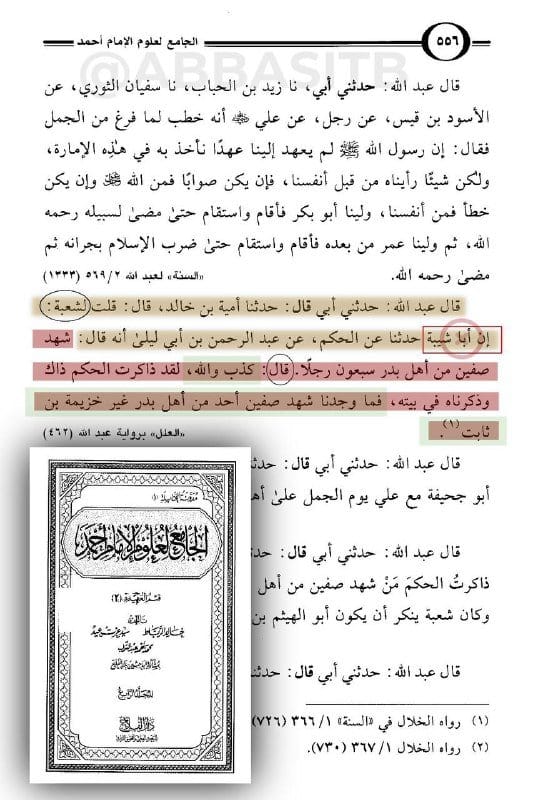 الجامع لعلوم الإمام أحمد
٥٥٦
@ABBASITB
قال عبد الله: حدثني أبي، نا زيد بن الحباب، نا سفيان الثوري، عن
الأسود بن قيس، عن رجل، عن علي ﷺ أنه خطب لما فرغ من الجمل
فقال: إن رسول الله ﷺ لم يعهد إلينا عهدًا نأخذ به في هذِه الإمارة،
ولكن شيئًا رأيناه من قبل أنفسنا، فإن يكن صوابًا فمن الله ﷻ وإن يكن
خطأ فمن أنفسنا، ولينا أبو بكر فأقام واستقام حتىٰ مضىٰ لسبيله رحمه
الله، ثم ولينا عمر من بعده فأقام واستقام حتىٰ ضرب الإسلام بجرانه ثم
مضىٰ رحمه الله.
«السنة» لعبد الله ٥٦٩/٢ (١٣٣٣)
قال عبد الله: حدثني أبي قال: حدثنا أمية بن خالد، قال: قلت لشعبة:
إن أبا شيبة حدثنا عن الحكم، عن عبد الرحمن بن أبي ليلىٰ أنه قال: شهد
صفين من أهل بدر سبعون رجلًا. قال: كذب والله، لقد ذاكرت الحكم ذاك
وذكرناه في بيته، فما وجدنا شهد صفين أحد من أهل بدر غير خزيمة بن
ثابت (١).
«العلل» برواية عبد الله (٤٦٢)
قال عبد الله: حدثني أبي قال: حدثنا
أبو جحيفة مع علي يوم الجمل علىٰ أه
قال عبد الله: حدثني أبي قال: حدثنا
ذاكرتُ الحكمَ مَنْ شهد صفين من أهل
وكان شعبة ينكر أن يكون أبو الهيثم بن
قال عبد الله: حدثني أبي قال: حدثنا
(١) رواه الخلال في «السنة» ٣٦٦/١ (٧٢٦)
(٢) رواه الخلال ٣٦٧/١ (٧٣٠).
الجامع لعلوم الإمام أحمد
قسم العقيدة (٢)
تأليف
خالد الرباط سيد عزت عيد
المجلد الرابع
دار الفلاح